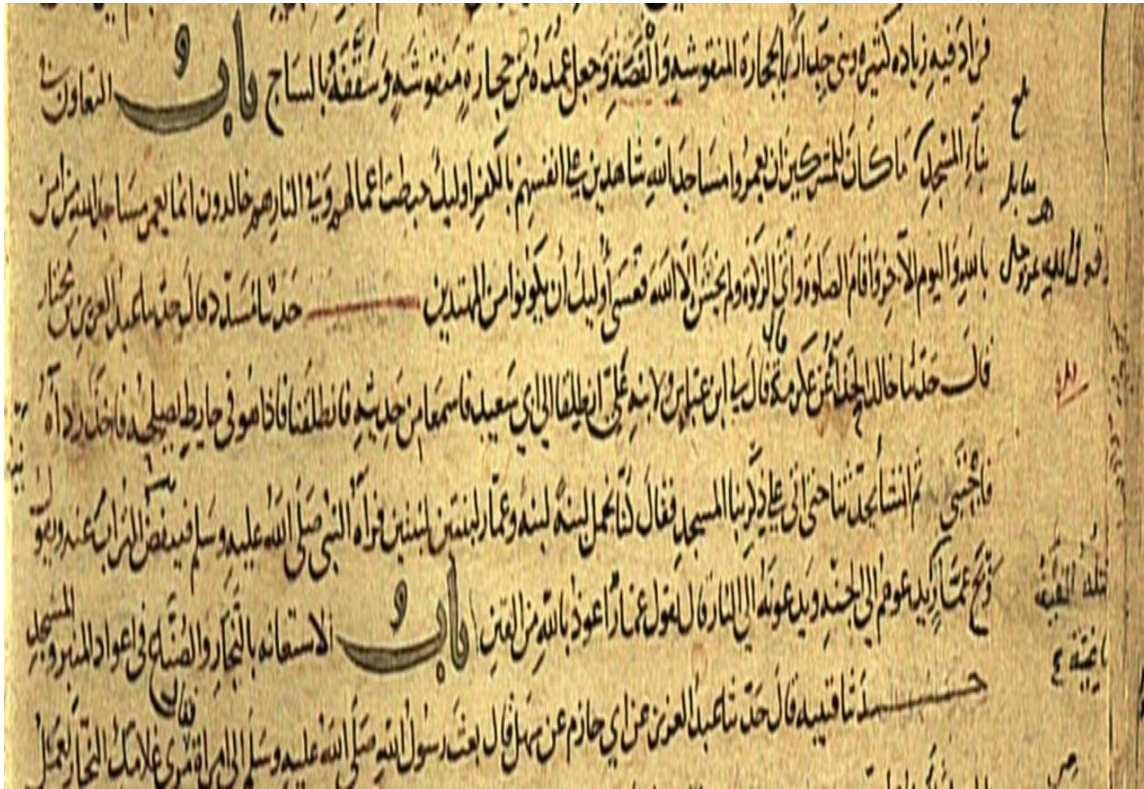 فزاد فيه زيادة كثيرة وبنى جداره بالحجارة المنقوشة والقصة وجعل عمده من حجارة منقوشة وسقفه بالساج باب التعاون في
بناء المسجد ما كان للمشركين ان يعمروا مساجد الله شاهدين على انفسهم بالكفر اوليك حبطت اعمالهم وفي النار هم خالدون انما يعمر مساجد الله من امن
قول الله عز وجل
بالله واليوم الآخر واقام الصلوة وآتى الزكوة ولم يخش الا الله فعسى أوليك أن يكونوا من المهتدين حدثنا مسدد قال حدثنا عبد العزيز بن مختار
قال حدثنا خالد الحذاء عن عكرمة قال لي ابن عباس ولابنه علي انطلقا الى ابي سعيد فاسمعا من حديثه فانطلقنا فاذا هو في حايط يصلحه فاخذ رداءه
فاحتبى ثم انشأ يحدثنا حتى اتى على ذكر بنا المسجد فقال كنا نحمل لبنة لبنة وعمار لبنتين لبنتين فرآه النبي صلى الله عليه وسلم فينفض التراب عنه ويقول
ويح عمار يدعوهم الى الجنة ويدعونه الى النار قال يقول عمار اعوذ بالله من الفتن باب الاستعانة بالنجار والصناع في اعواد المنبر والمسجد
حدثنا قتيبة قال حدثنا عبد العزيز عن ابي حازم عن سهل قال بعث رسول الله صلى الله عليه وسلم الى امراة مري غلامك النجار يعمل